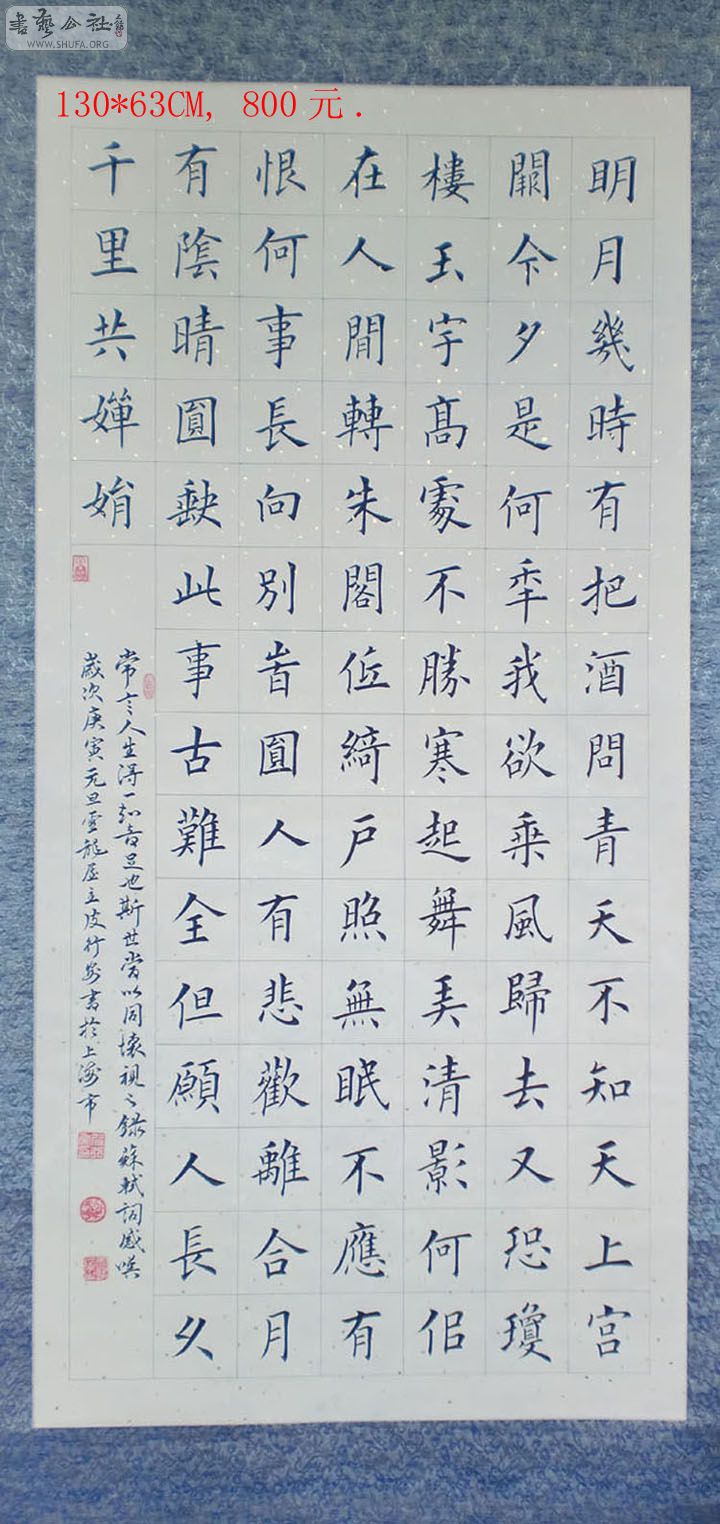 書藝公社
WWW.SHUFA.ORG
130*63CM, 800元.
明月幾時有把酒問青天不知天上宮
闕今夕是何年我欲乘風歸去又恐瓊
樓玉宇高處不勝寒起舞弄清影何似
在人間轉朱閣低綺户照無眠不應有
恨何事長向別時圓人有悲歡離合月
有陰晴圓缺此事古難全但願人長久
千里共嬋娟
常言人生得一知音足也斯世當以同懷視之錄蘇軾詞感嘆
歲次庚寅元旦雲龍屋主皮行安書於上海市